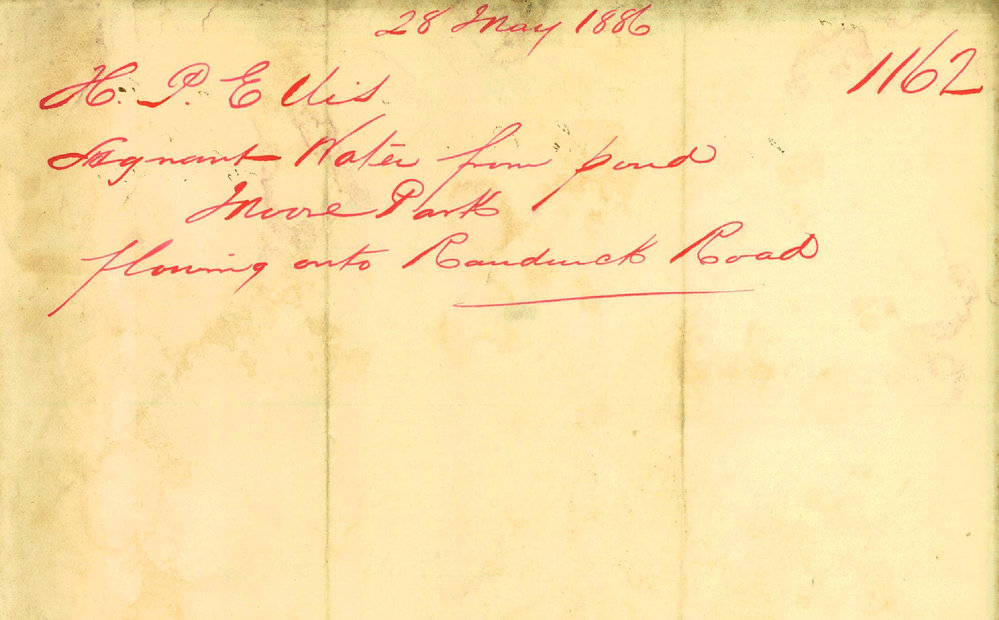 28 May 1886
1162
H. P. Ellis
Stagnant Water from pond
Moore Park
flowing onto Randwick Road